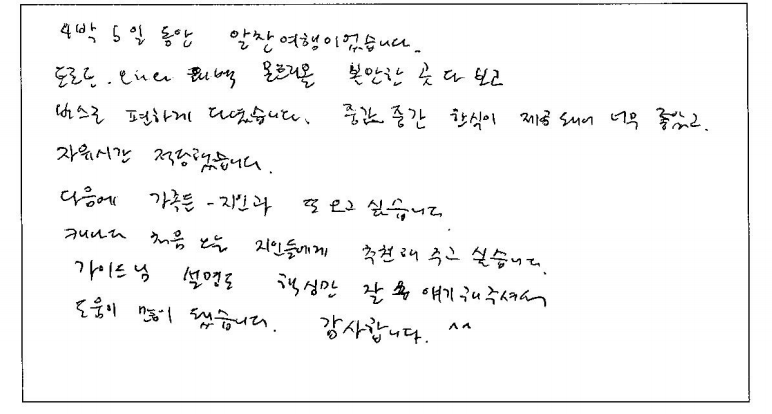 4박 5일 동안 알찬여행이었습니다.
토론토. 오타와 퀘벡 몬트리올 본안한 곳 다 보고
버스로 편하게 다녔습니다. 중간중간 한식이 제공되어 너무 좋았고.
자유시간 적당했습니다.
다음에 가족든-지인과 또 오고 싶습니다
캐나다 처음 오는 지인들에게 추천해 주고 싶습니다.
가이드님 설명도 핵심만 잘 얘기해주셔서
도움이 많이 됐습니다. 감사합니다. ^^